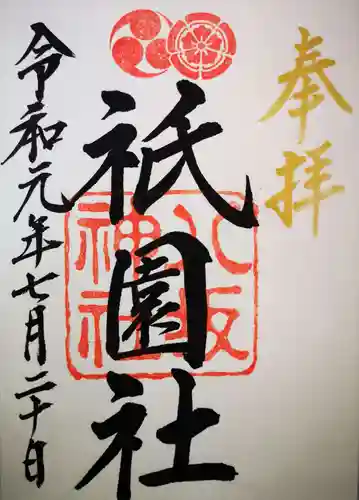 奉拝
祇園社
八坂神社
令和元年七月二十日